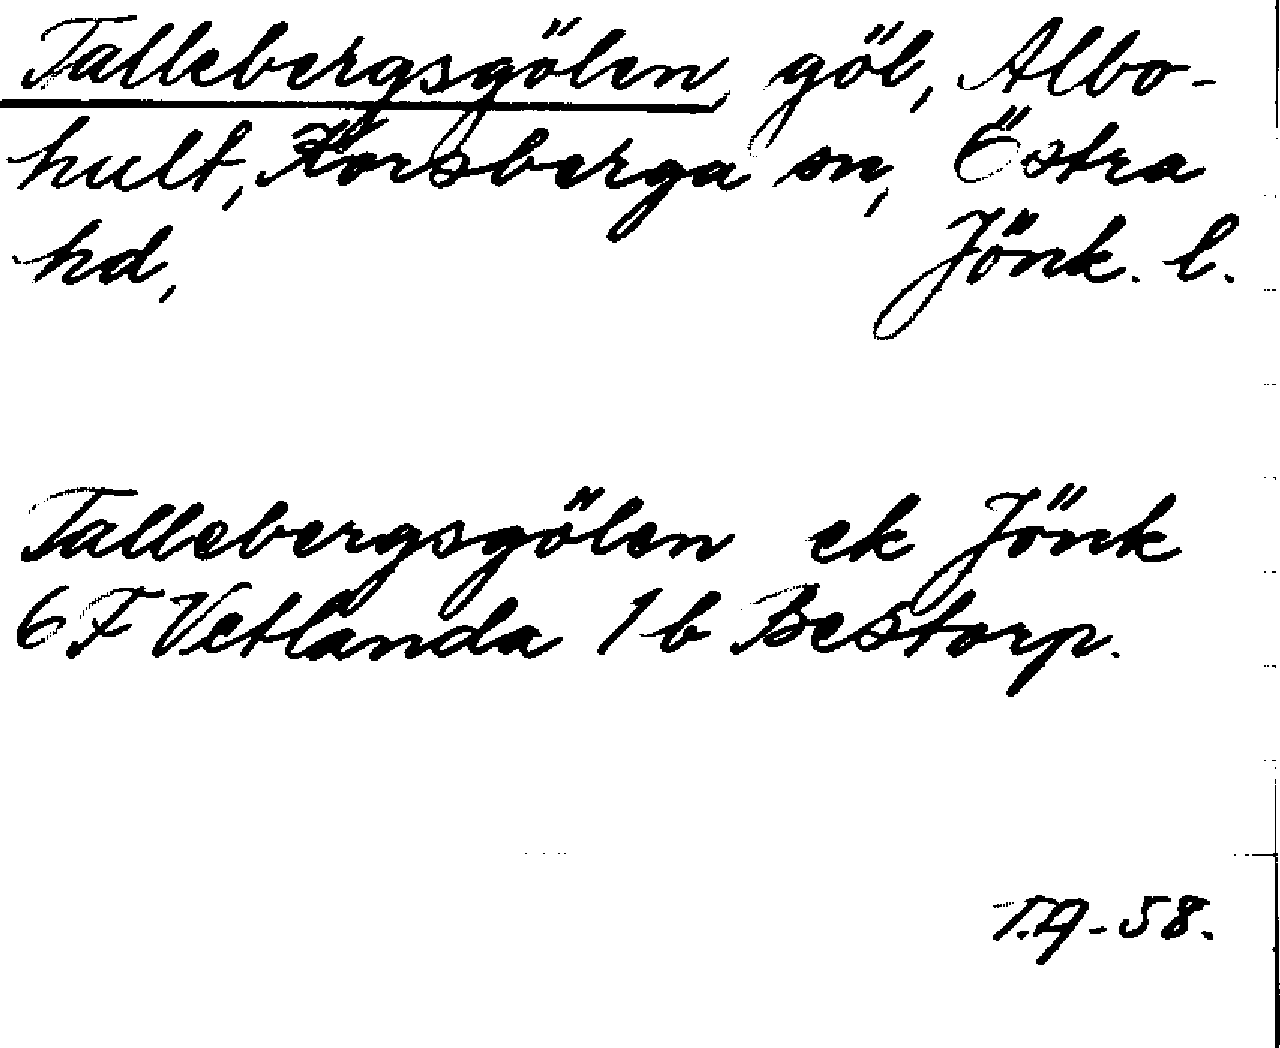 Tallebergsgölen, göl, Albo-
hult, Korsberga sn, Östra
hd, Jönk. l.
Tallebergsgölen ek Jönk
6 F Vetlanda 1 b Bestorp.
T.A-58.